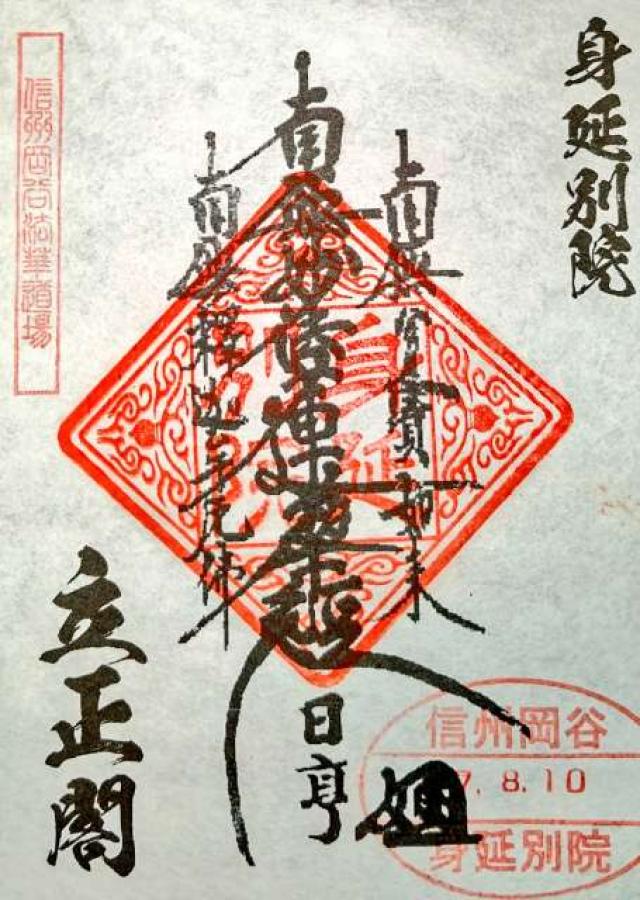 身延別院
南無多寶如来
南無妙法蓮華経
南無釋迦牟尼佛
日亨
立正閣
信州岡谷法華道場
身延別院
信州岡谷
7. 8. 10
身延別院